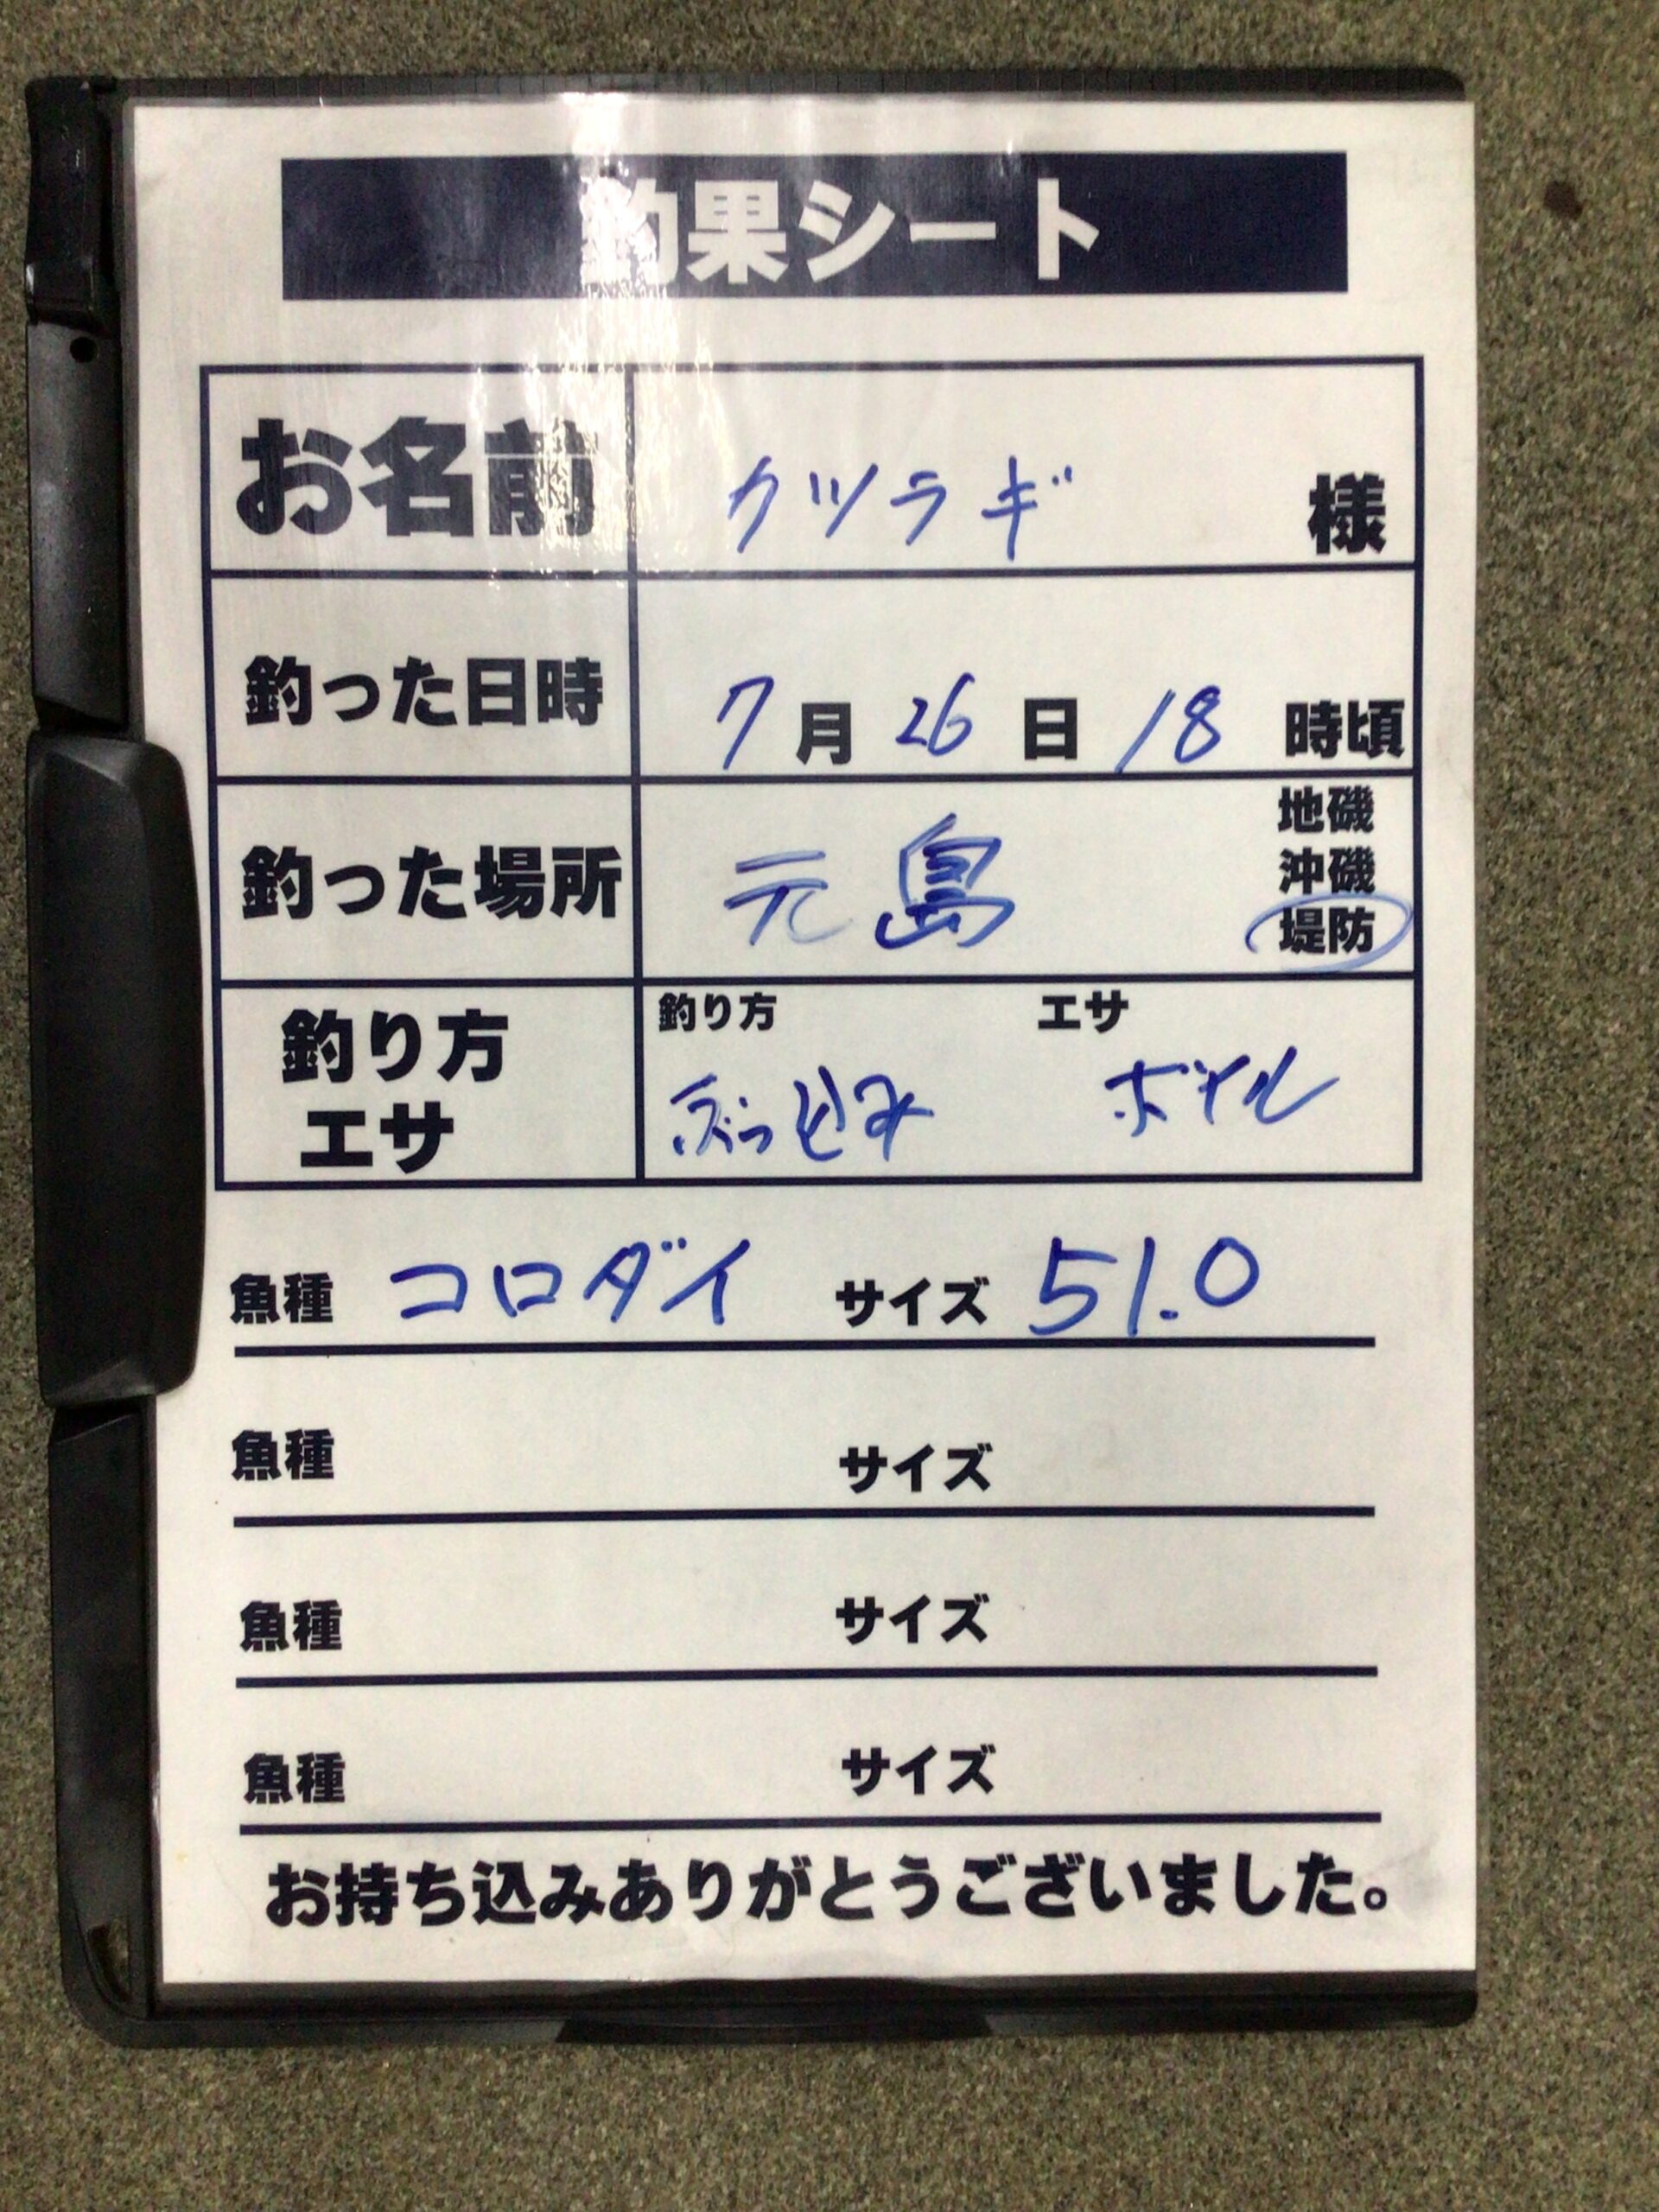 釣果シート
お名前 クツラギ 様
釣った日時 7月26日18時頃
地磯
沖磯
釣った場所 元島 堤防
釣り方 エサ
釣り方 エサ
ぶっ込み ボイル
魚種 コロダイ サイズ 51.0
魚種 サイズ
魚種 サイズ
魚種 サイズ
お持ち込みありがとうございました。